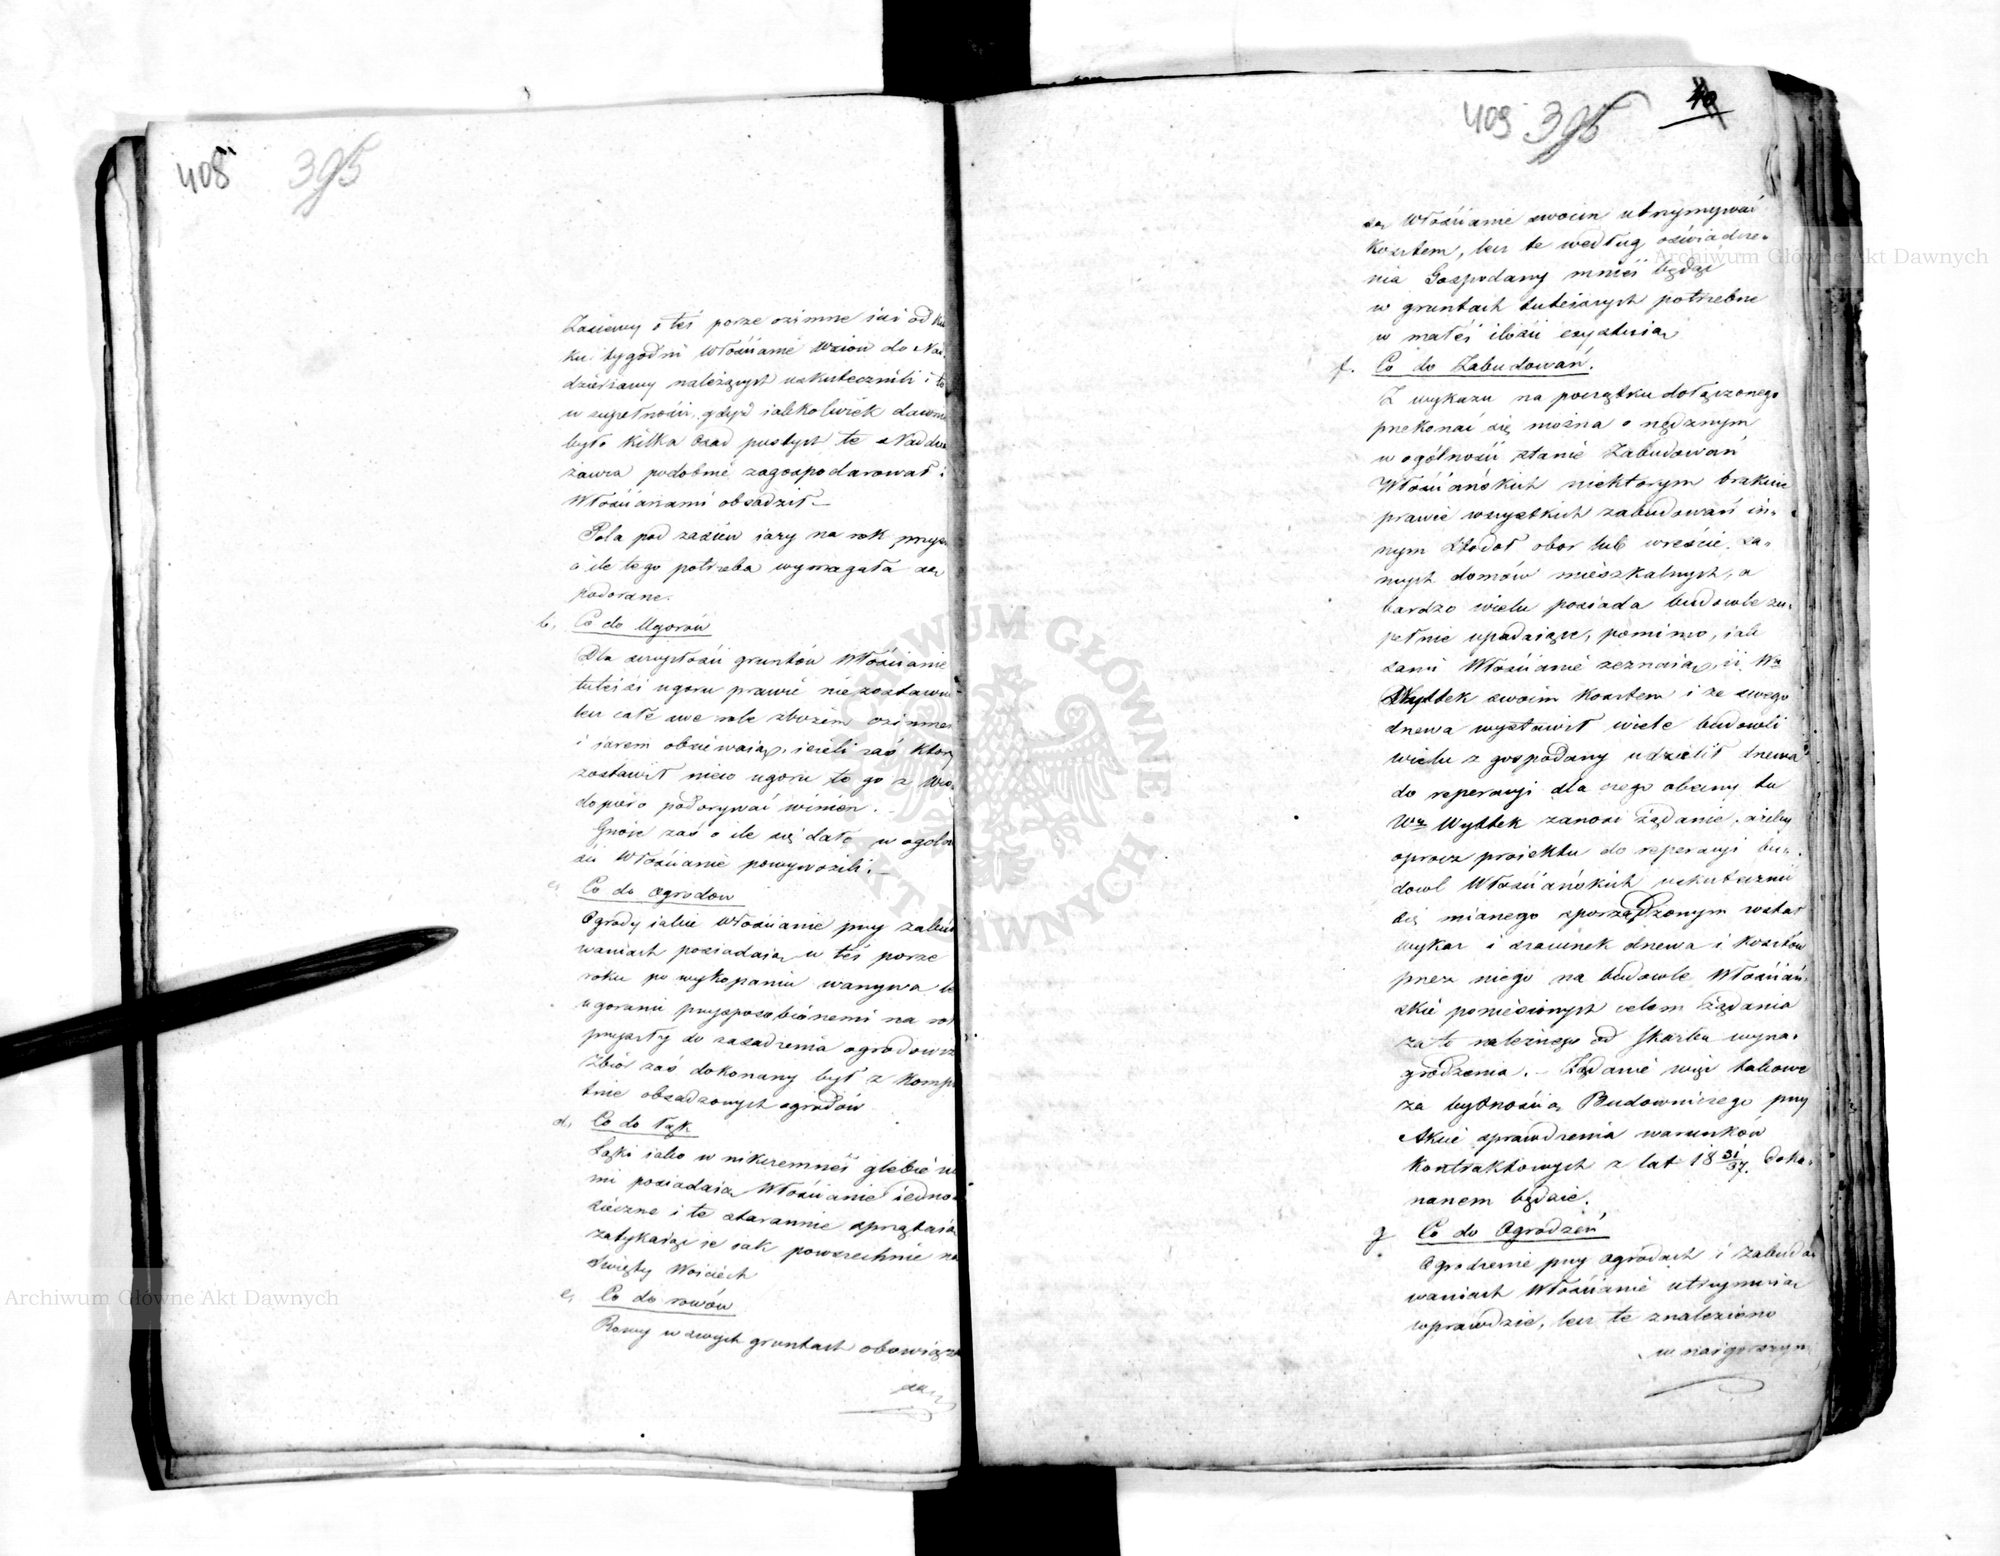 408
395
Zasiewy o téj porze ozimne już od kil
ku tygodni Włościanie wsiów do Nad
dzierżawy należących uskutecznili i to
w zupełności, gdyż jakkolwiek dawniej
było kilka Osad pustych te Naddzier
żawca podobnie zagospodarował i
Włościanami obsadził.—
Pola pod zasiew jary na rok przysz
o ile tego potrzeba wymagała są
podorane.
b. Co do Ugorów
Dla szczupłości gruntów Włościanie
tutejsi ugoru prawie niezostawu
lecz całe swe role zbożem ozimnem
i jarem obsiewają, jeżeli zaś który
zostawił nieco ugoru to go z
dopiero podorywać winien.
Gnoje zaś o ile się dało w ogóln
ści Włościanie powywozili.—
c. Co do Ogrodów
Ogrody jakie Włościanie przy zabudo
waniach posiadają w téj porze
roku po wykopaniu warzywa
ugorami przysposobionemi na rok
przyszły do zasadzenia ogrodowizn
Zbiór zaś dokonany był z komple
tnie obsadzonych ogrodów
d. Co do Łąk
Łąki jako w nikczemnéj glebie
mi posiadają Włościanie jedno
sieczne i te starannie sprzątają
zatykając je jak powszechnie na
Święty Wojciech
e. Co do rowów
Rowy w swych gruntach obowiąza
są
409 395
40
są Włościanie swoim utrzymywać
Kosztem, lecz te według oświadcze-
nia Gospodarzy mniéj będąc
w gruntach tutejszych potrzebne
w małéj ilości exystują
f. Co do Zabudowań.
Z wykazu na początku dołączonego
przekonać się można o nędznym
w ogólności stanie Zabudowań
Włościańskich niektórym brakuie
prawie wszystkich zabudowań in-
nym Stodoł obor lub wreście sa-
mych domów mieszkalnych, a
bardzo wielu posiada budowle zu-
pełnie upadaiące, pomimo, jak
sami Włościanie zeznaią, iż Wy
Wyttek swoim Kosztem i ze swego
drzewa wystawił wiele budowli
wielu z gospodarzy udzielił drzewa
do reperacyi dla czego obecny tu
Wy Wyttek zanosi żądanie, ażeby
oprócz proiektu do reperacyi bu-
dowl Włościańskich uskutecznić
się mianego sporządzonym został
wykaz i szacunek drzewa i kosztów
przez niego na budowle Włościań
skie poniesionych celem żądania
za to należnego od Skarbu wyna-
grodzenia.— Żądanie więc takowe
za bytnością Budowniczego przy
Akcie sprawdzenia warunków
Kontraktowych z lat 18 31/37. Doko-
nanem będzie.
g Co do Ogrodzeń
Ogrodzenie przy ogrodach i zabudo
waniach Włościanie utrzymuią
wprawdzie, lecz te znaleziono
w najgorszym